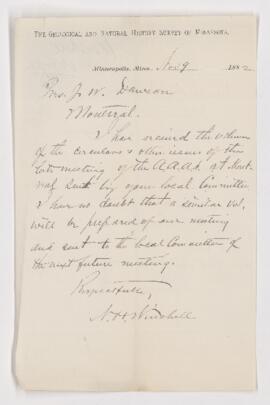 THE GEOLOGICAL AND NATURAL HISTORY SURVEY OF MINNESOTA.
Minneapolis, Minn. Nov 9 1882
Pres. J. W. Dawson
Montreal.
I have received the volume
of the circulars & other issues of the
late meeting of the A.A.A.S. at Mont-
real sent by your local Committee
I have no doubt that a similar vol.
will be prepared of our meeting
and sent to the local Committee of
the next future meeting.
Respectfully,
N. H. Winchell